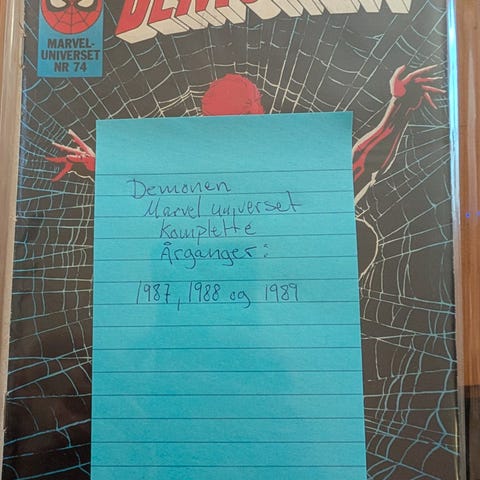 MARVEL-
UNIVERSET
NR 74
Demonen
Marvel universet
Komplette
Årganger:
1987, 1988 og 1989